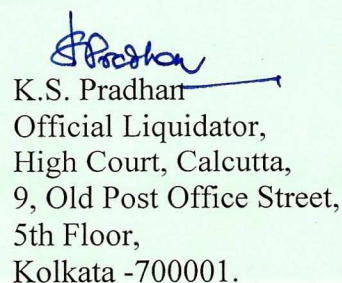 SPradhan
K.S. Pradhan
Official Liquidator,
High Court, Calcutta,
9, Old Post Office Street,
5th Floor,
Kolkata -700001.